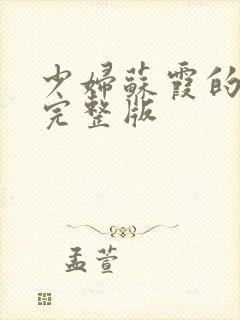 少婦蘇霞的
完整版
孟萱